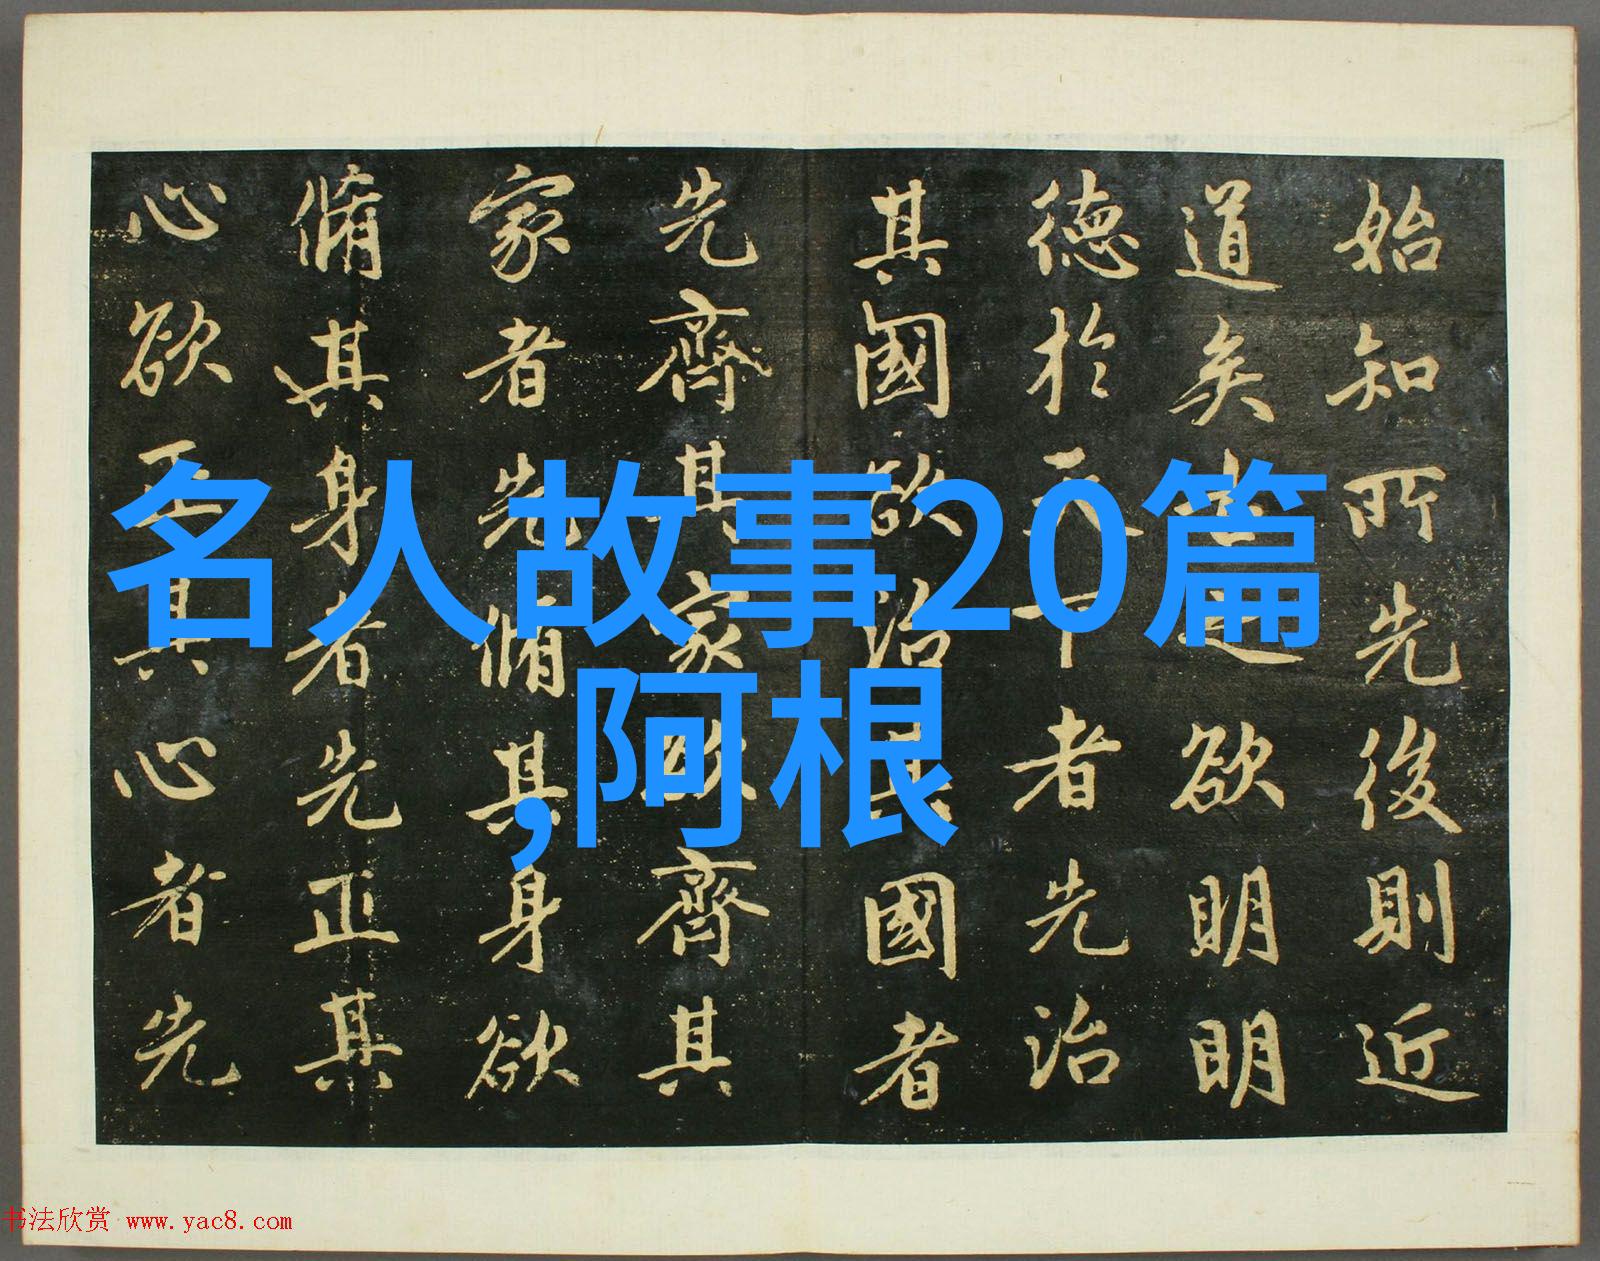 始知所先後則近
道矣古之欲明明
德於天下者先治
其國欲治其國者
先齊其家欲齊其
家者先脩其身欲
脩其身者先正其
心欲正其心者先
名人故事20篇
,阿根
书法欣赏 www.yac8.com